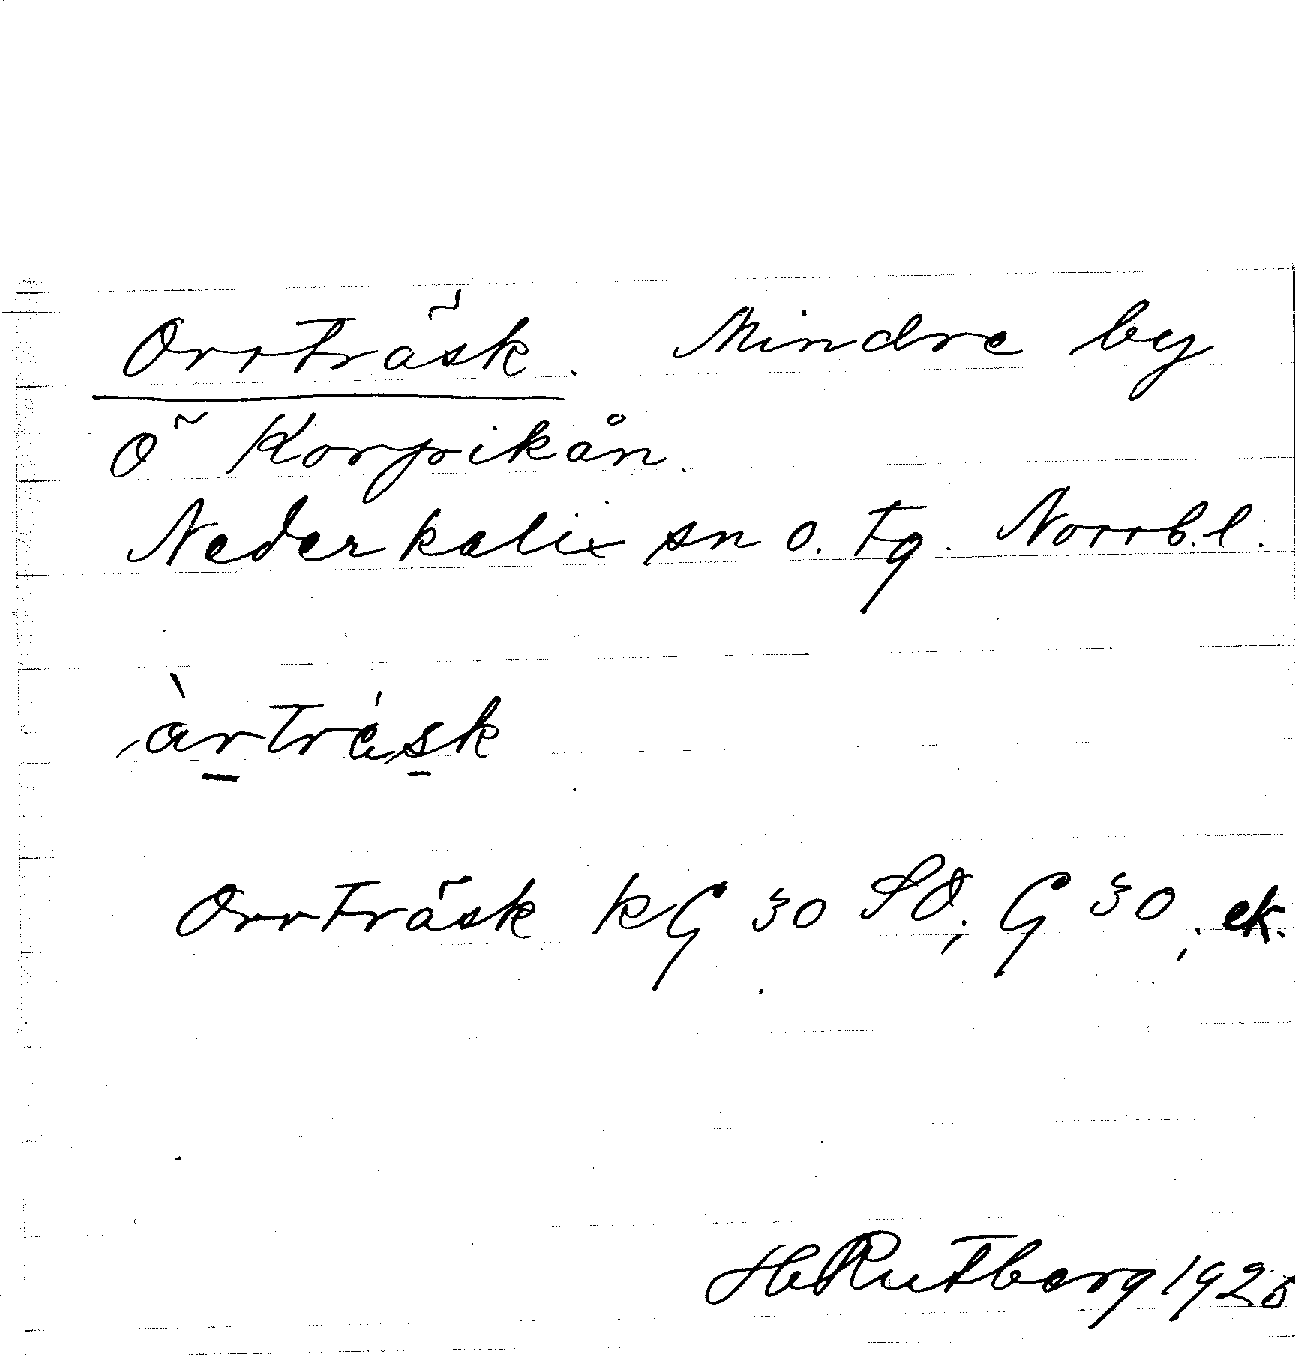 Orrträsk. Mindre by
Ö Korpikån.
Nederkalix sn o. tg. Norrb.l.
àrtræsk
Orrträsk KG 30 SO; G 30; ek.
H Rutberg 1928